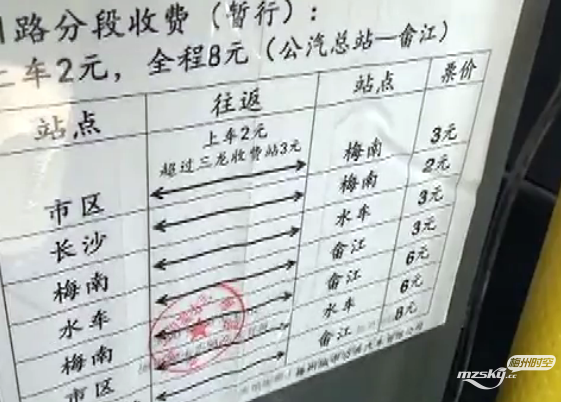 路分段收费（暂行）：
上车2元，全程8元（公汽总站—畲江）
站点 往返 站点 票价
上车2元
超过三龙收费站3元
市区 梅南 3元
长沙 梅南 2元
梅南 水车 3元
水车 畲江 3元
梅南 畲江 6元
市区 水车 6元
畲江 8元
梅州时空
mzsky.cc